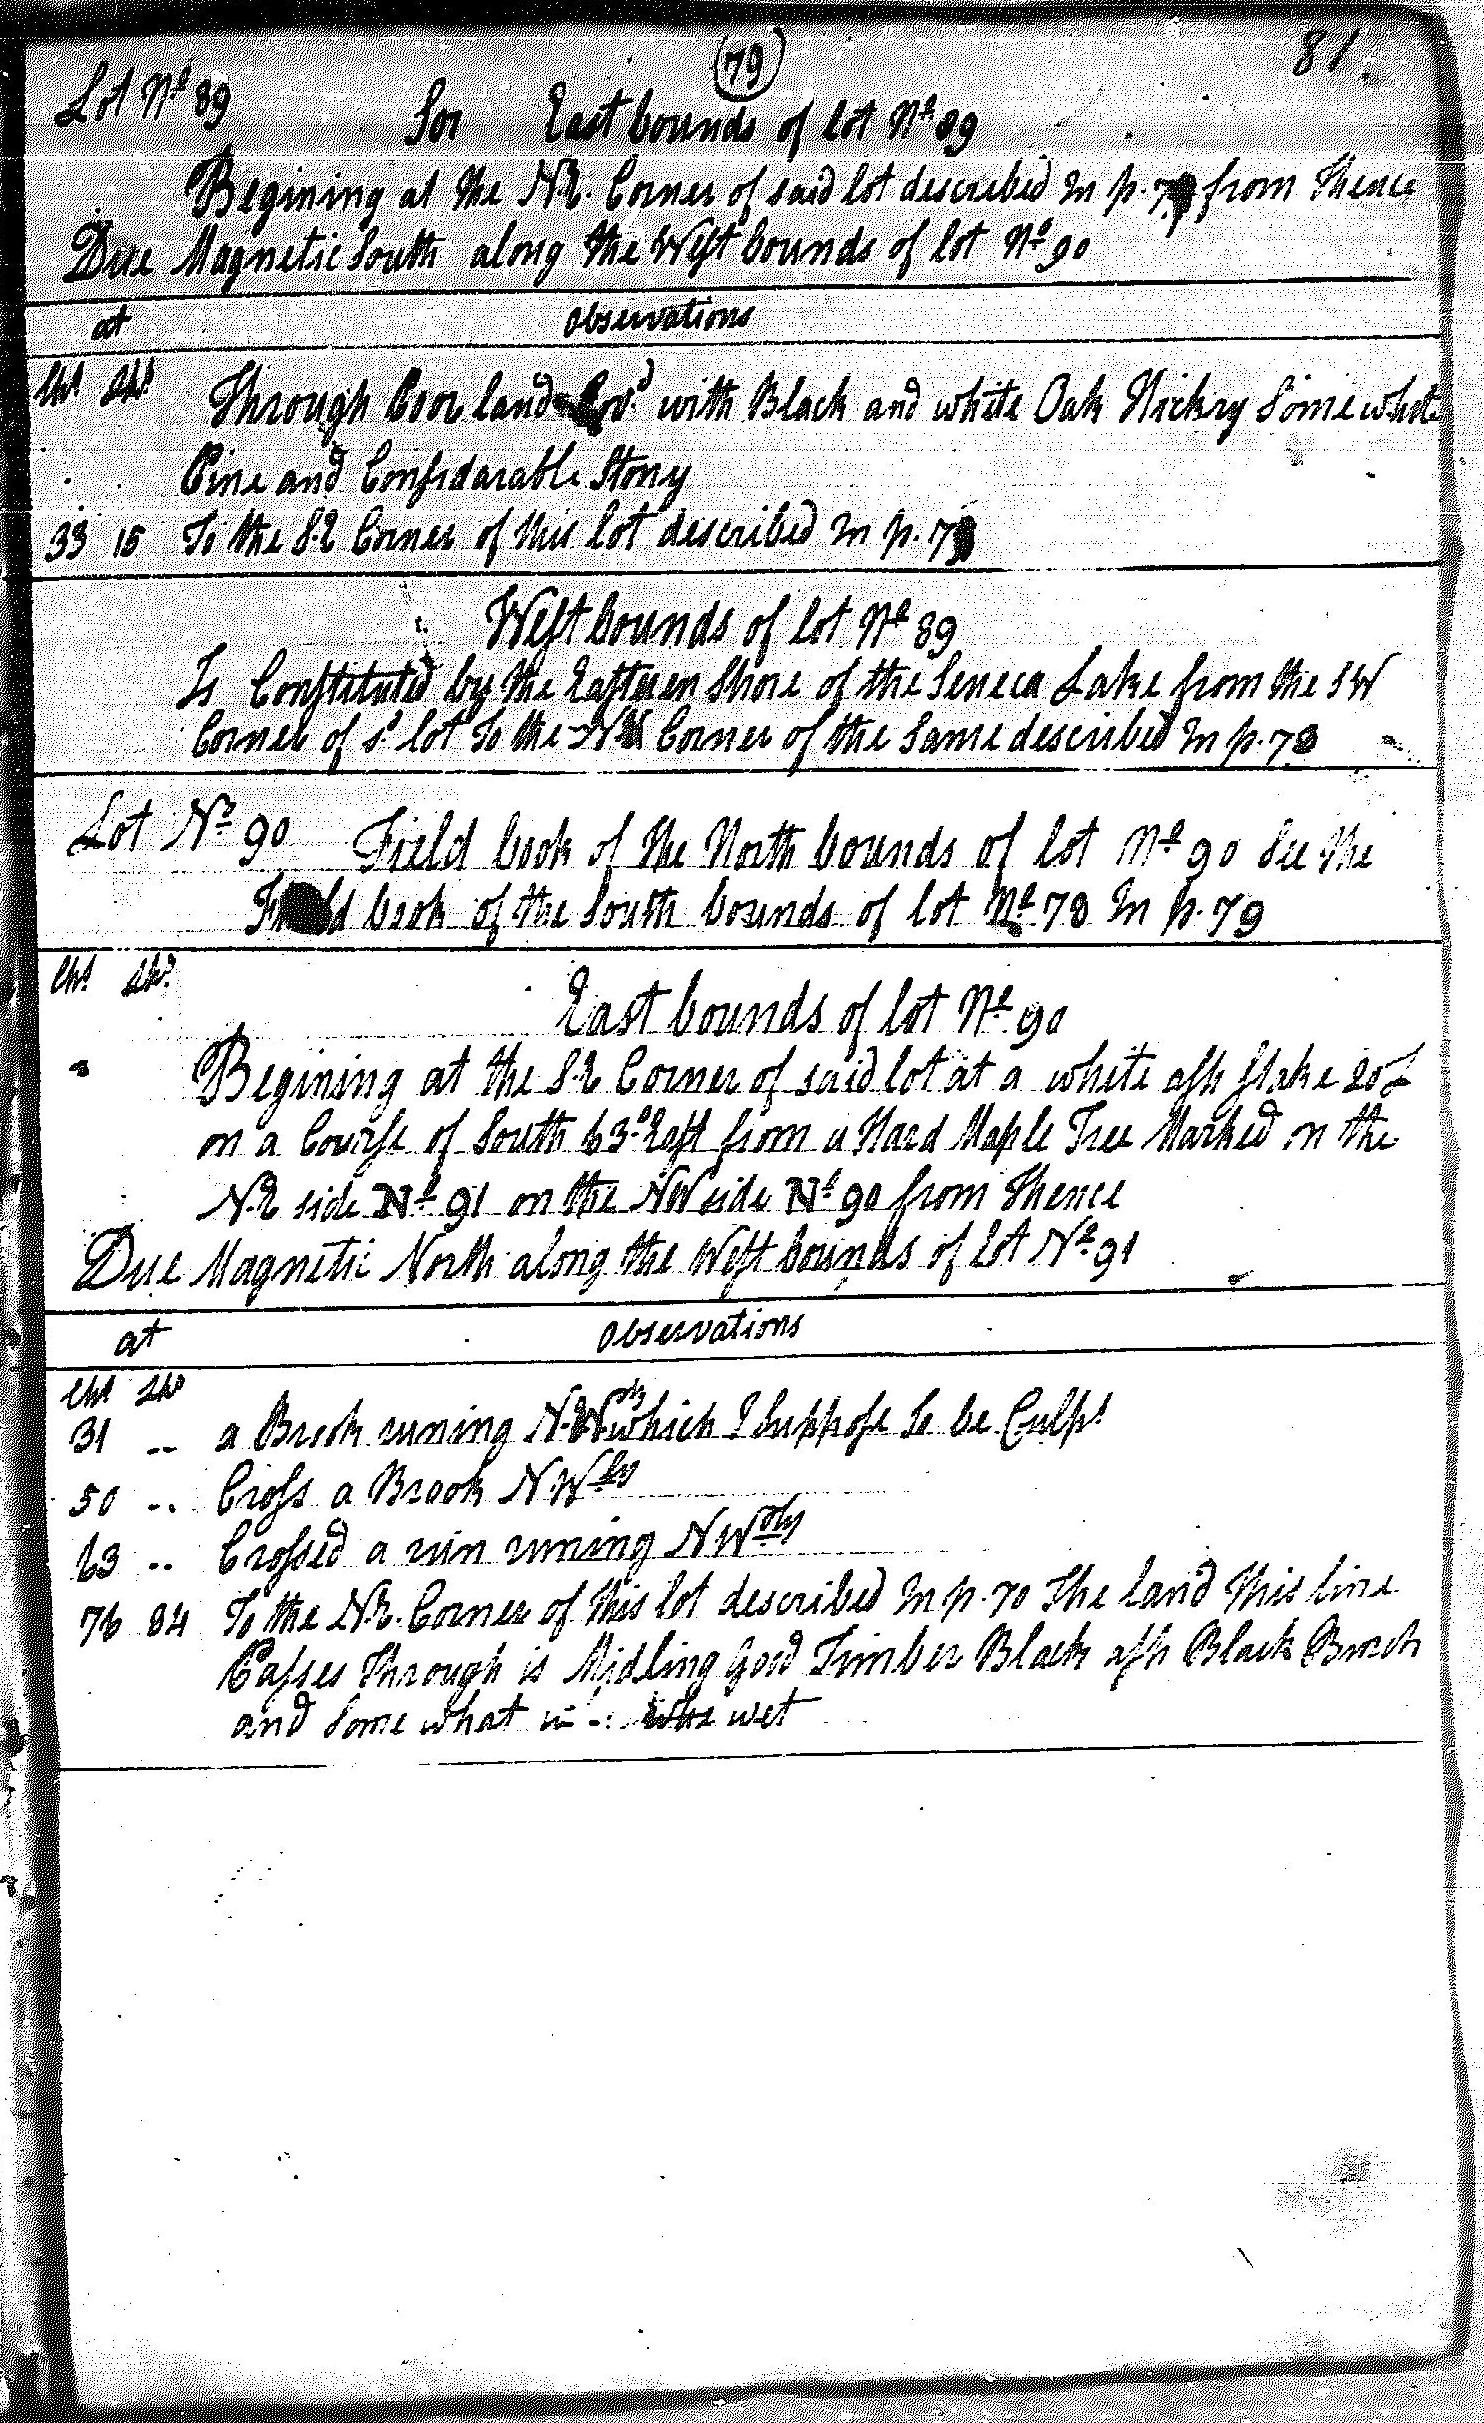 79
81.
Lot No. 89
For East bounds of lot No. 89
Begining at the N.E. Corner of said lot described In p. from Thence
Due Magnetic South along the West bounds of lot No. 90
at observations
Chs Lks
Through Poor land Cov.d with Black and white Oak Hickry Some white
Pine and Considarable Stony
33 15 To the S.E Corner of this lot described In p.
West bounds of lot No. 89
Is Constituted by the Eastern Shore of the Seneca Lake from the SW
Corner of sd lot To the NW Corner of the Same described In p. 78
Lot No. 90 Field book of the North bounds of lot No. 90 See the
Field book of the South bounds of lot No. 78 In p. 79
Chs Lks
East bounds of lot No. 90
Begining at the S.E Corner of said lot at a white ash stake 20 L
on a Course of South 63° East from a Hard Maple Tree Marked on the
N.E side No. 91 on the NW side No. 90 from Thence
Due Magnetic North along the West bounds of lot No. 91
at observations
Chs Lks
31 .. a Brook runing which I Suppose to be Culps
50 .. Cross a Brook N.Wly
63 .. Crossed a run runing N Woly
76 84 To the N.E. Corner of this lot described In p. 70 The Land this line
Passes Through is Midling Good Timber Black ash Black Burch
and Some what wet